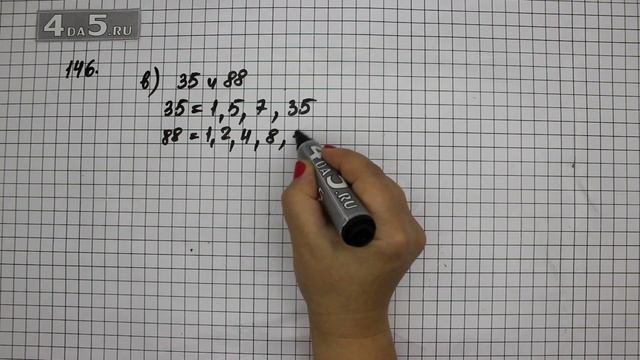 4DA5.RU
146.
в) 35 и 88
35 = 1, 5, 7, 35
88 = 1, 2, 4, 8,
4DA5.RU